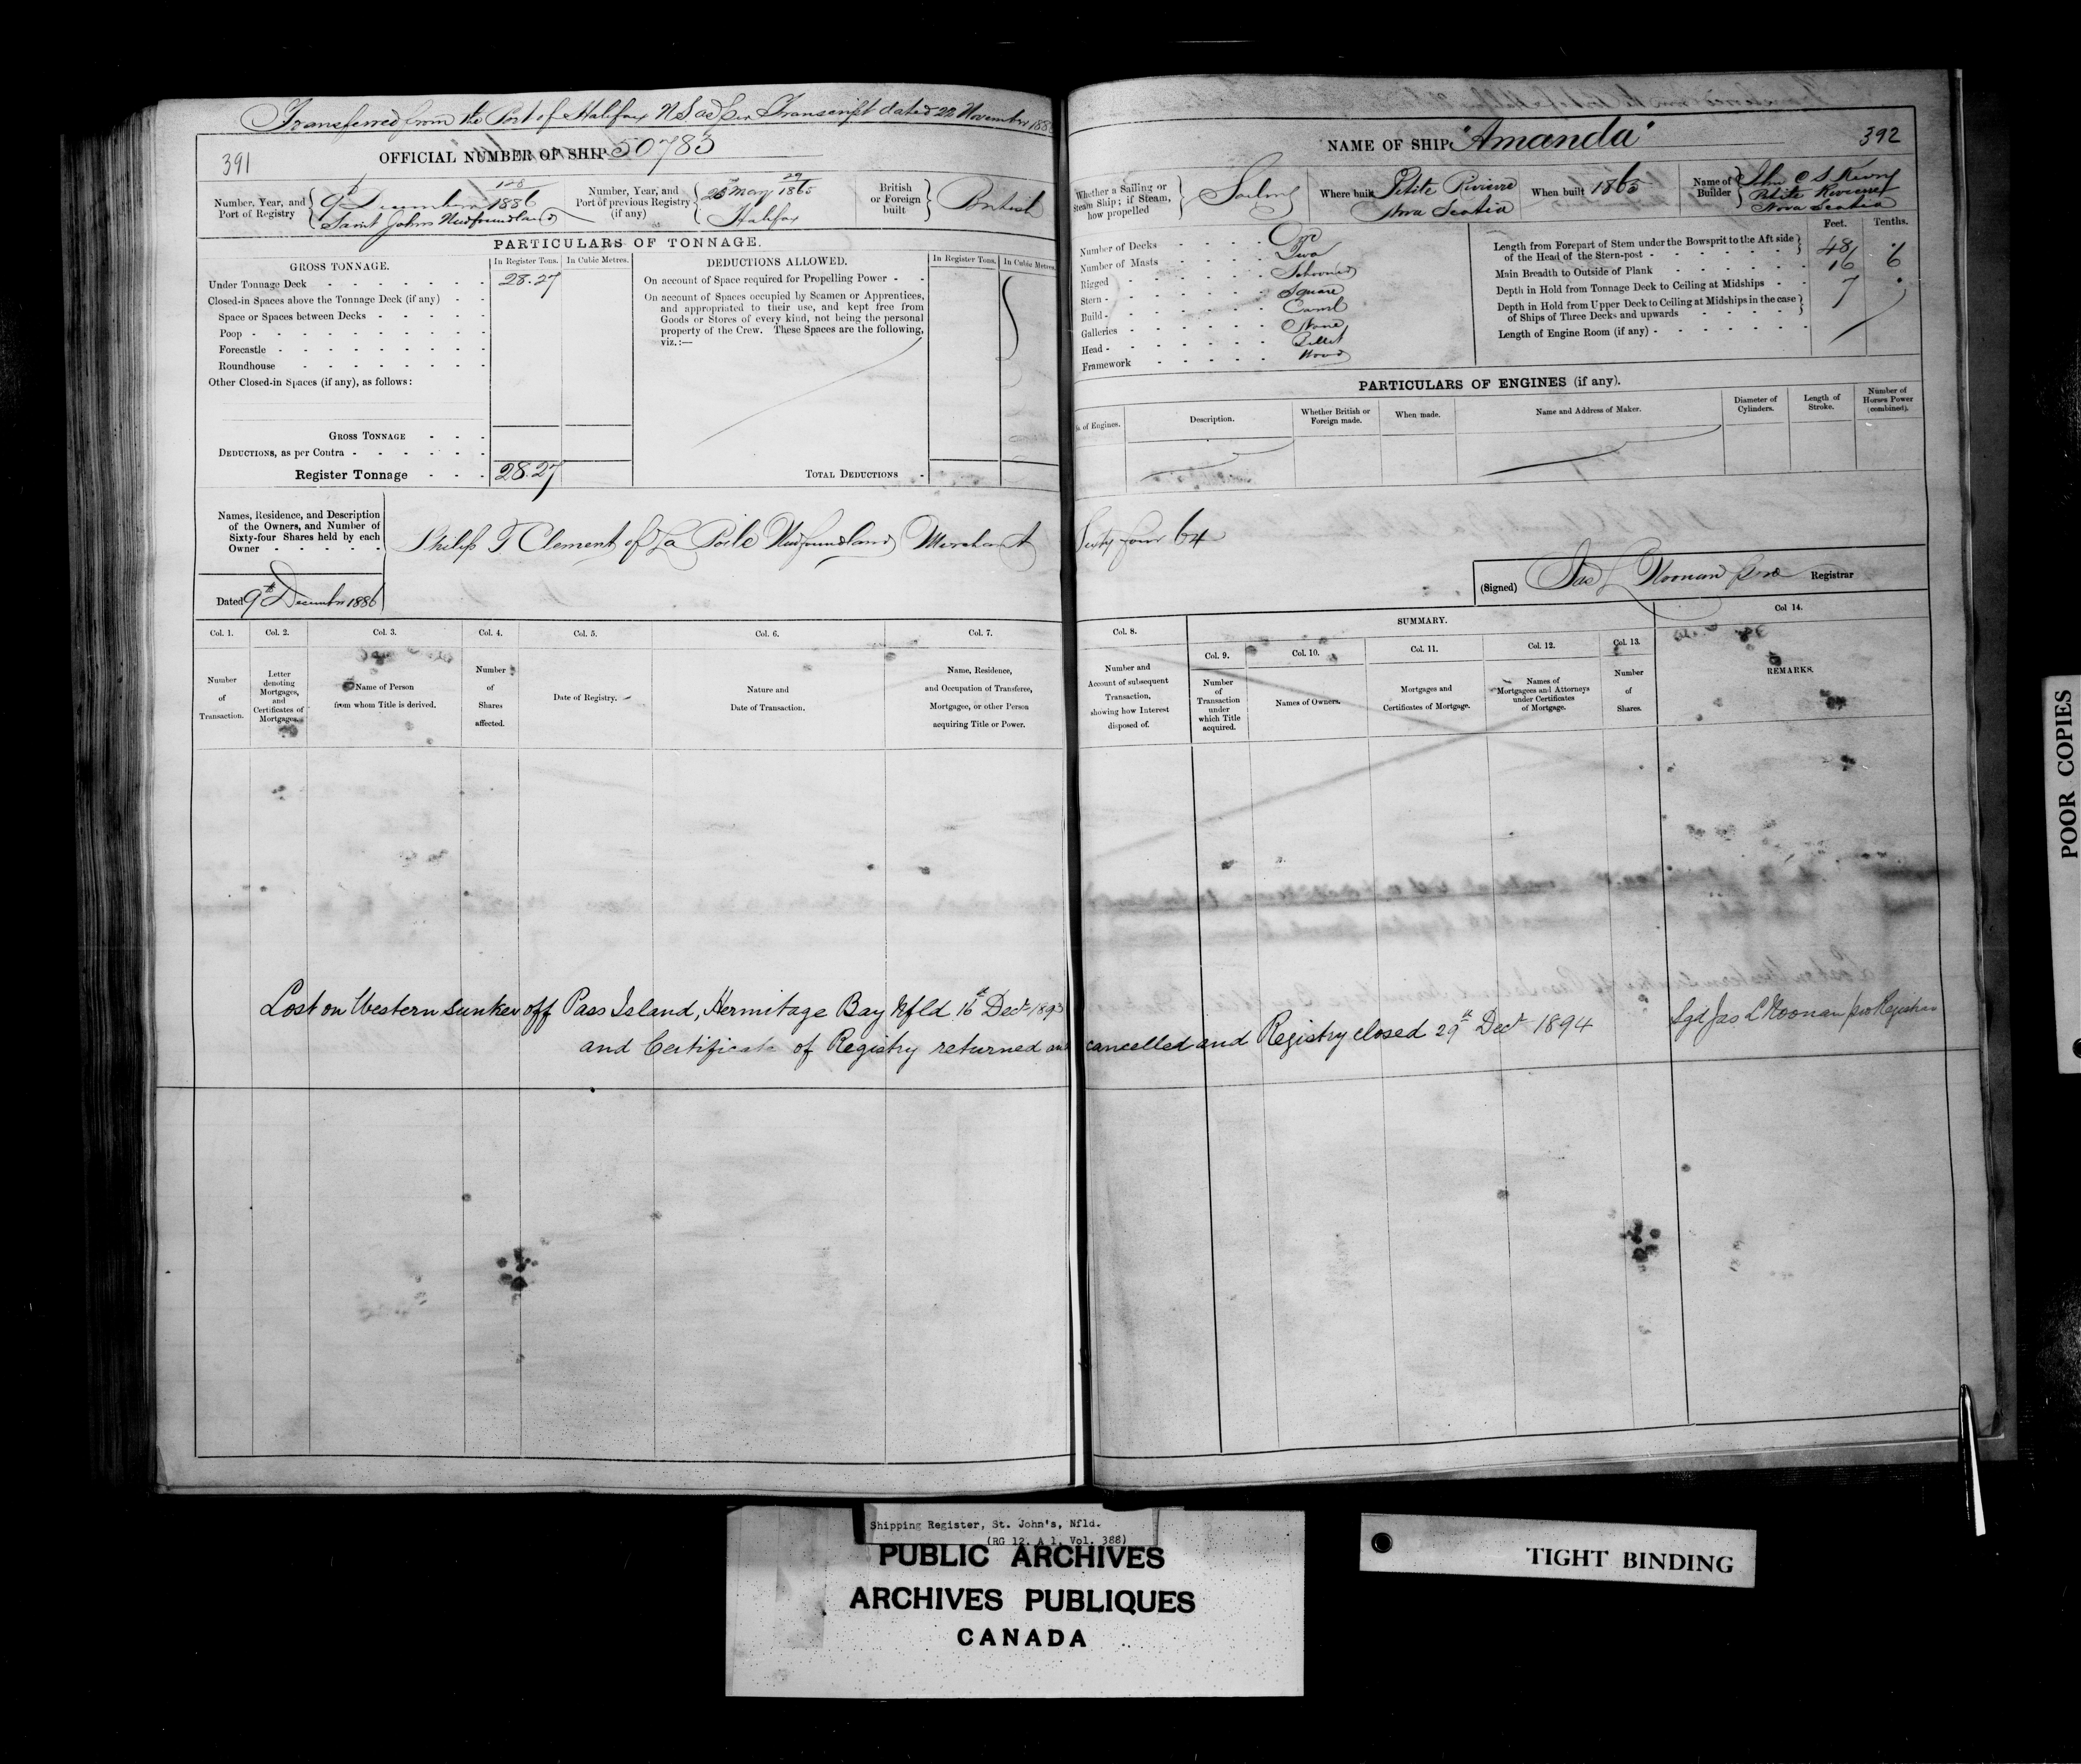 Transferred from the Port of Halifax NS as per Transcript dated 22 November 188
391
OFFICIAL NUMBER OF SHIP 50783
Number, Year, and Port of Registry
9th December 1886
Saint Johns Newfoundland
Number, Year, and Port of previous Registry (if any)
29
25 May 1865
Halifax
British or Foreign built
British
PARTICULARS OF TONNAGE.
GROSS TONNAGE.
In Register Tons.
In Cubic Metres.
DEDUCTIONS ALLOWED.
In Register Tons.
In Cubic Metres.
Under Tonnage Deck 28.27
Closed-in Spaces above the Tonnage Deck (if any)
Space or Spaces between Decks
Poop
Forecastle
Roundhouse
Other Closed-in Spaces (if any), as follows:
GROSS TONNAGE
DEDUCTIONS, as per Contra
Register Tonnage 28.27
On account of Space required for Propelling Power
On account of Spaces occupied by Seamen or Apprentices,
and appropriated to their use, and kept free from
Goods or Stores of every kind, not being the personal
property of the Crew. These Spaces are the following,
viz.:—
TOTAL DEDUCTIONS
Names, Residence, and Description
of the Owners, and Number of
Sixty-four Shares held by each
Owner
Philip T Clement of La Poile Newfoundland Merchant
Dated 9th December 1886
Col. 1.
Col. 2.
Col. 3.
Col. 4.
Col. 5.
Col. 6.
Col. 7.
Number of Transaction.
Letter denoting Mortgages, and Certificates of Mortgages.
Name of Person from whom Title is derived.
Number of Shares affected.
Date of Registry.
Nature and Date of Transaction.
Name, Residence, and Occupation of Transferee, Mortgagee, or other Person acquiring Title or Power.
Lost on Western Sunker off Pass Island, Hermitage Bay Nfld 16th Decr 1893
and Certificate of Registry returned and
NAME OF SHIP "Amanda"
392
Whether a Sailing or Steam Ship; if Steam, how propelled
Sailing
Where built
Petite Riviere
Nova Scotia
When built 1865
Name of Builder
Petite Riviere
Nova Scotia
Number of Decks One
Number of Masts Two
Rigged Schooner
Stern Square
Build Carvel
Galleries None
Head Billet
Framework Wood
Feet.
Tenths.
Length from Forepart of Stem under the Bowsprit to the Aft side
of the Head of the Stern-post 48
Main Breadth to Outside of Plank 16 6
Depth in Hold from Tonnage Deck to Ceiling at Midships 7
Depth in Hold from Upper Deck to Ceiling at Midships in the case
of Ships of Three Decks and upwards
Length of Engine Room (if any)
PARTICULARS OF ENGINES (if any).
of Engines.
Description.
Whether British or Foreign made.
When made.
Name and Address of Maker.
Diameter of Cylinders.
Length of Stroke.
Number of Horses Power (combined).
Sixty four 64
(Signed) Jas L Noonan pro Registrar
Col. 8.
SUMMARY.
Col 14.
Col. 9.
Col. 10.
Col. 11.
Col. 12.
Col. 13.
Number and Account of subsequent Transaction, showing how Interest disposed of.
Number of Transaction under which Title acquired.
Names of Owners.
Mortgages and Certificates of Mortgage.
Names of Mortgagees and Attorneys under Certificates of Mortgage.
Number of Shares.
REMARKS.
cancelled and Registry closed 29th Decr 1894
Sgd Jas L Noonan pro Registrar
POOR COPIES
Shipping Register, St. John's, Nfld.
(RG 12, A 1, Vol. 388)
PUBLIC ARCHIVES
ARCHIVES PUBLIQUES
CANADA
TIGHT BINDING